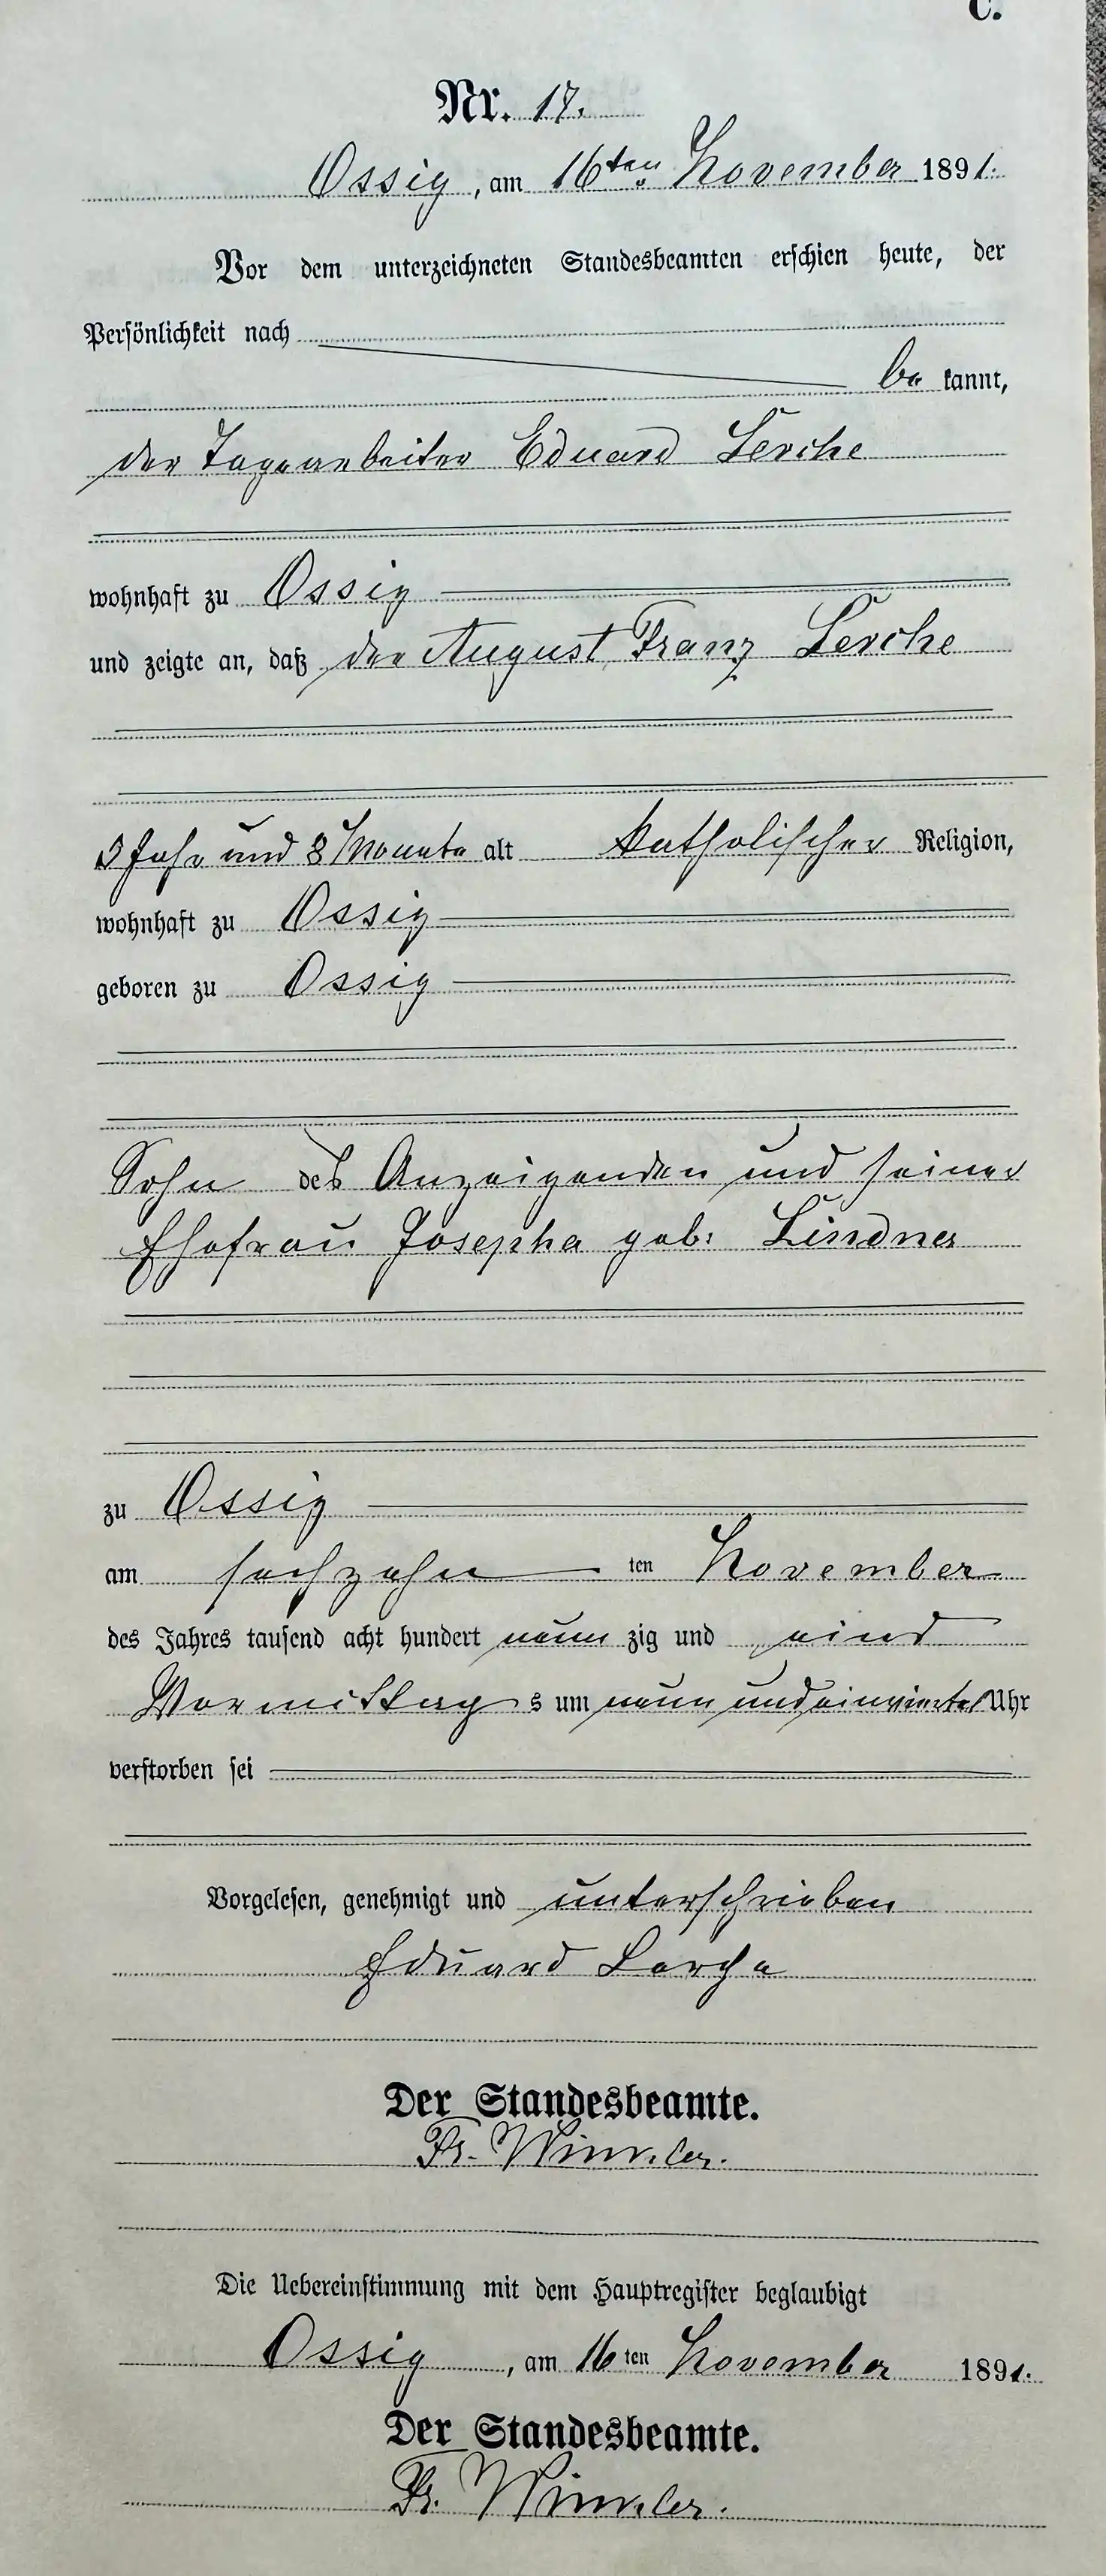 C.
Nr. 17.
Ossig, am 16ten November 1891.
Vor dem unterzeichneten Standesbeamten erschien heute, der
Persönlichkeit nach
be kannt,
der Tagearbeiter Eduard Lerche
wohnhaft zu Ossig
und zeigte an, daß der August Franz Lerche
Jahr und 8 Monate alt katholischer Religion,
wohnhaft zu Ossig
geboren zu Ossig
Sohn des Anzeigenden und seiner
Ehefrau Josepha geb: Lindner
zu Ossig
am sechzehn ten November
des Jahres tausend acht hundert neun zig und eins
Vormittag s um neun und einviertel Uhr
verstorben sei
Vorgelesen, genehmigt und unterschrieben
Eduard Lerche
Der Standesbeamte.
Fr. Winkler.
Die Uebereinstimmung mit dem Hauptregister beglaubigt
Ossig, am 16ten November 1891.
Der Standesbeamte.
Fr. Winkler.